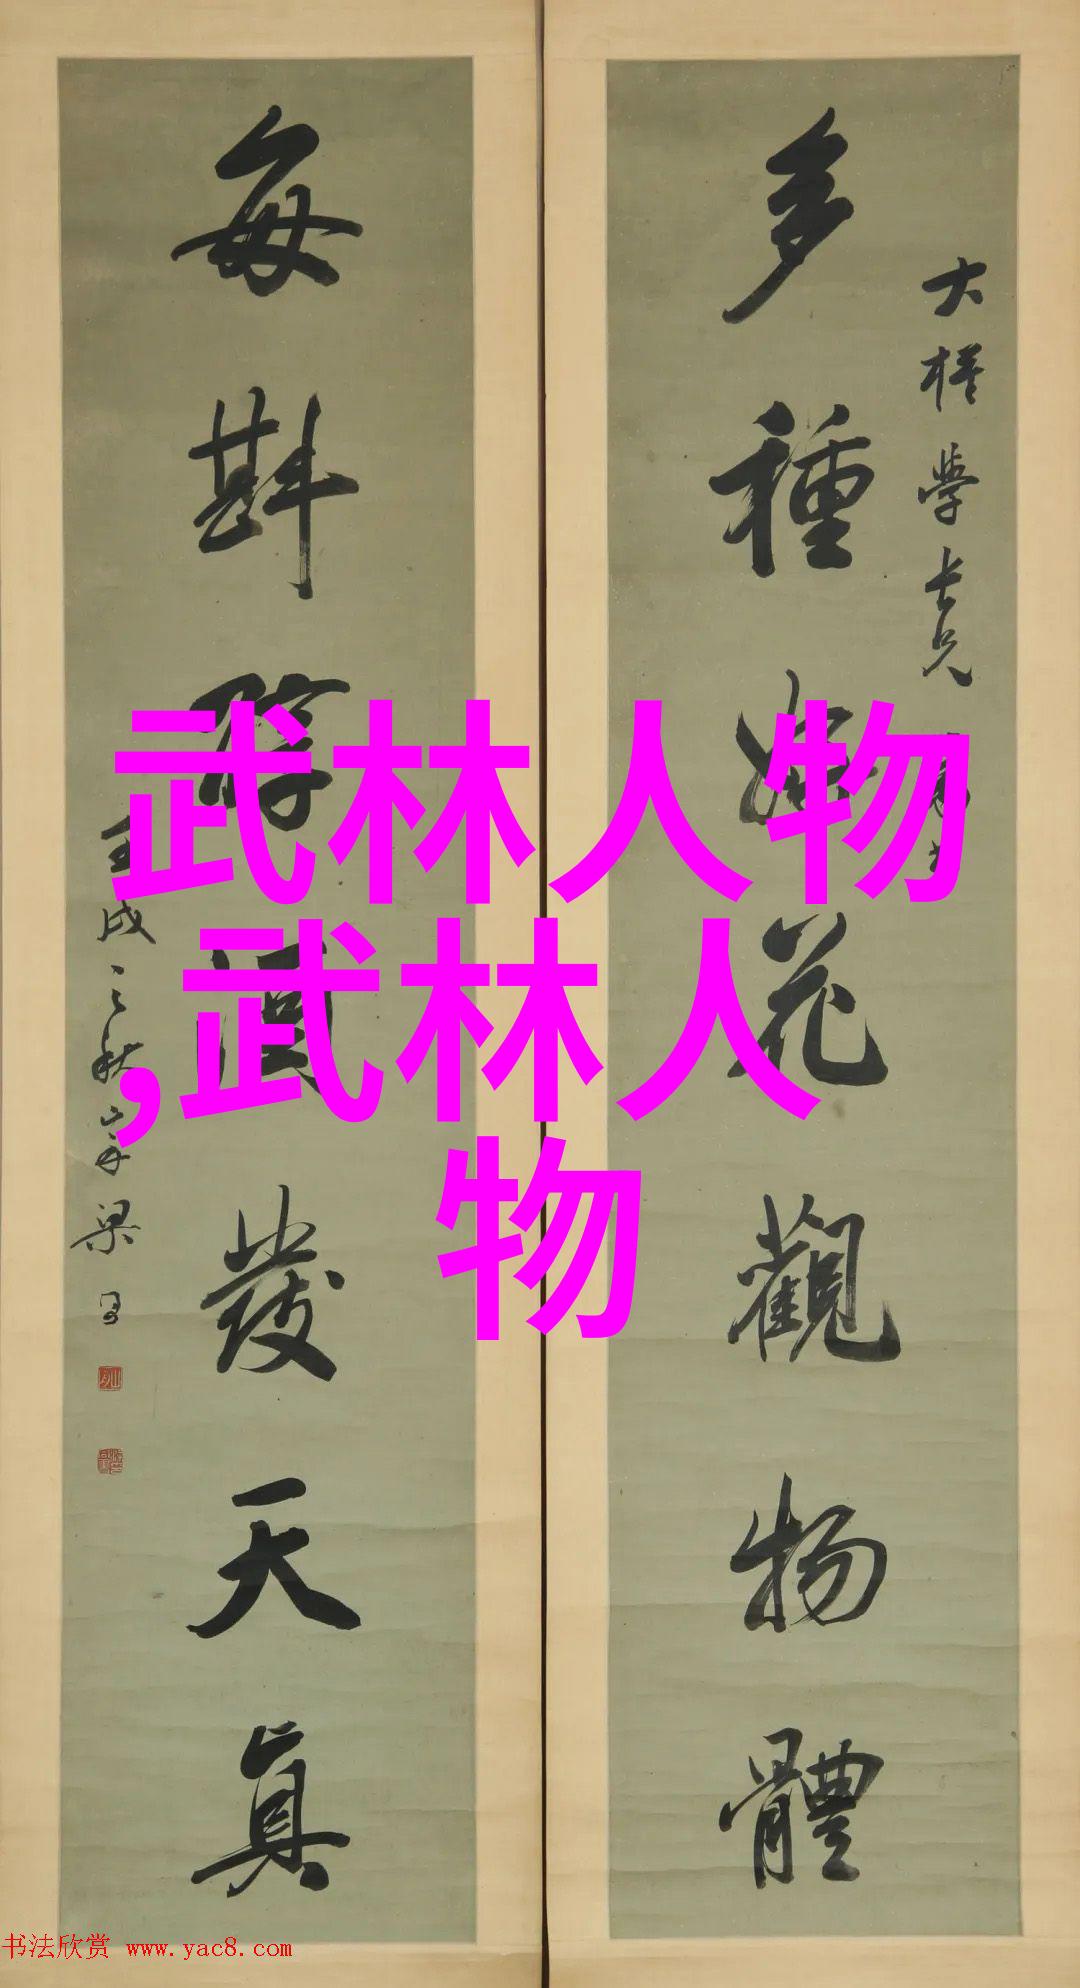 多種好花觀物體
大槎學長兄
每斟醇酒發天真
壬戌之秋
武林人物
,武林人
物
书法欣赏 www.yac8.com